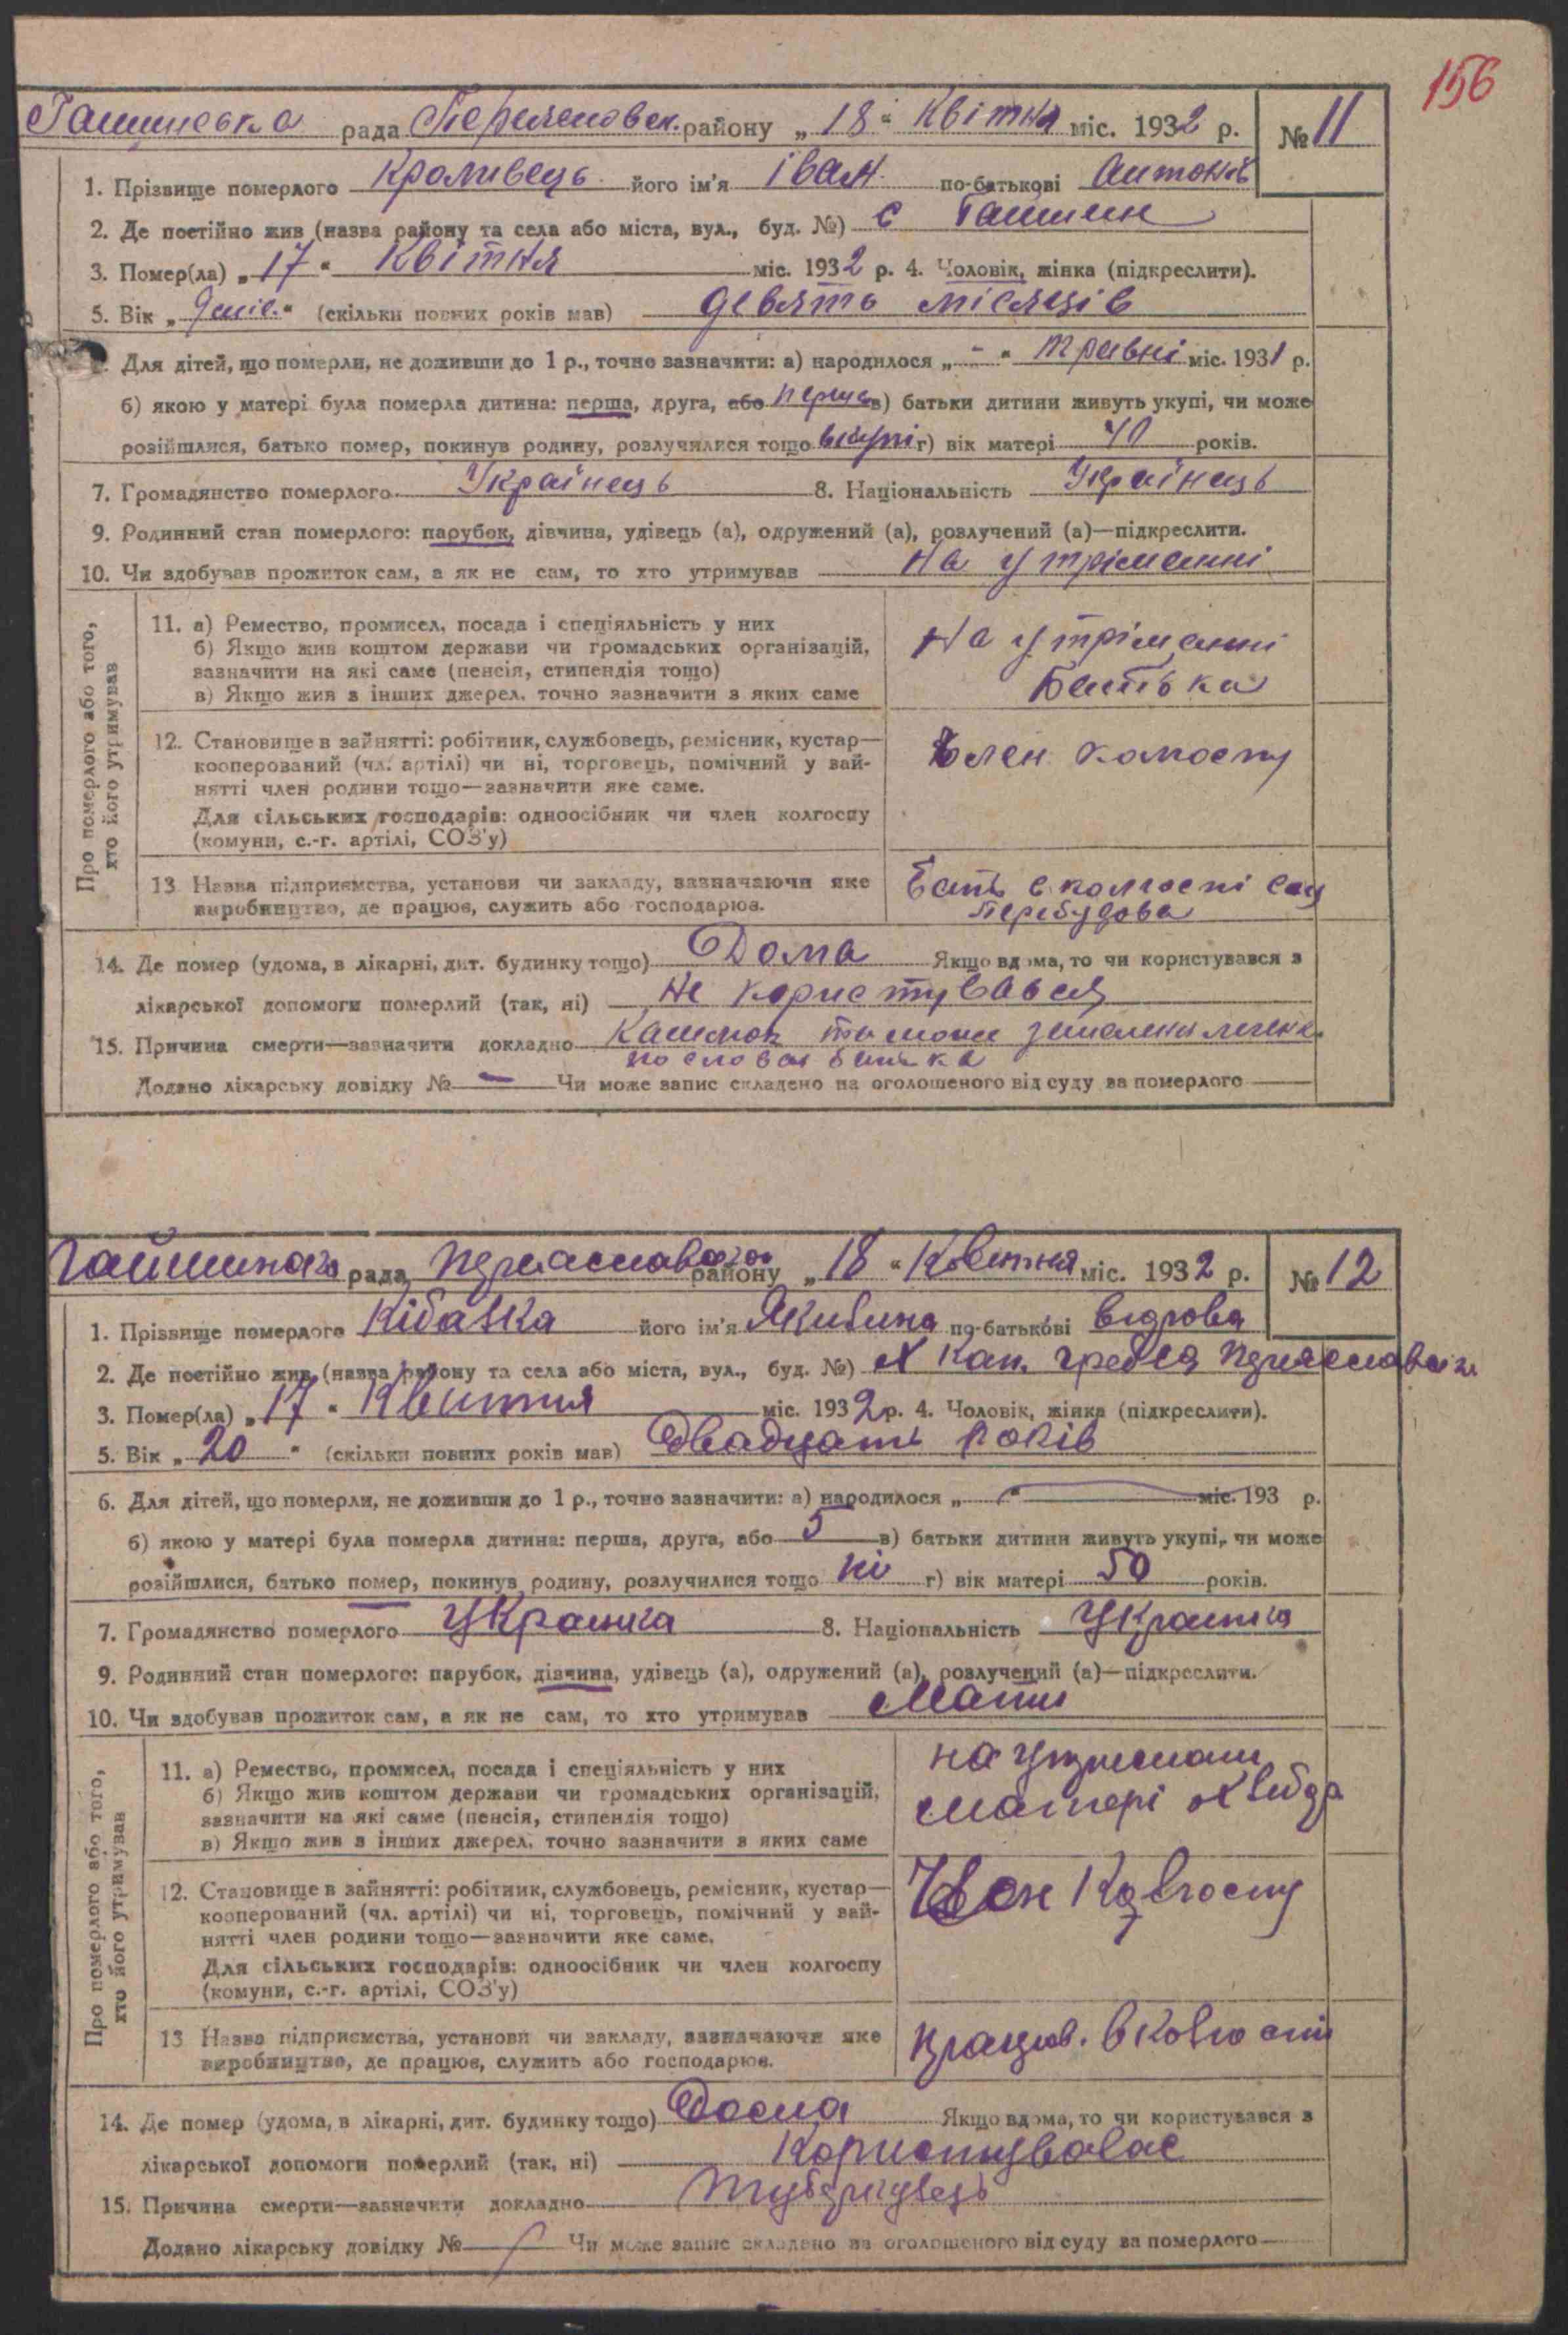 156
Гашинська рада Переясловск. району „18“ Квітня міс. 1932 р. № 11
1. Прізвище померлого Кроливець його ім'я Іван по-батькові Антонів
2. Де постійно жив (назва району та села або міста, вул., буд. №) с Гашин
3. Помер(ла) „17“ Квітня міс. 1932 р. 4. Чоловік, жінка (підкреслити).
5. Вік „9 міс.“ (скільки повних років мав) девять місяців
Для дітей, що померли, не доживши до 1 р., точно зазначити: а) народилося „-“ травні міс. 1931 р.
б) якою у матері була померла дитина: перша, друга, або перша в) батьки дитини живуть укупі, чи може
розійшлися, батько помер, покинув родину, розлучилися тощо вкупі г) вік матері 40 років.
7. Громадянство померлого Українець 8. Національність Українець
9. Родинний стан померлого: парубок, дівчина, удівець (а), одружений (а), розлучений (а)—підкреслити.
10. Чи здобував прожиток сам, а як не сам, то хто утримував На утріманні
Про померлого або того,
хто його утримував
11. а) Ремество, промисел, посада і спеціяльність у них
б) Якщо жив коштом держави чи громадських організацій,
зазначити на які саме (пенсія, стипендія тощо)
в) Якщо жив з інших джерел, точно зазначити з яких саме
На утріманні
Батька
12. Становище в зайнятті: робітник, службовець, ремісник, кустар—
кооперований (чл. артілі) чи ні, торговець, помічний у зай-
нятті член родини тощо—зазначити яке саме.
Для сільських господарів: одноосібник чи член колгоспу
(комуни, с.-г. артілі, СОЗ'у)
Член колгоспу
13 Назва підприємства, установи чи закладу, зазначаючи яке
виробництво, де працює, служить або господарює.
Бать в колгоспі
Перебудова
14. Де помер (удома, в лікарні, дит. будинку тощо) Дома Якщо вдома, то чи користувався з
лікарської допомоги померлий (так, ні) Не користувався
15. Причина смерти—зазначити докладно Кашлюк
по словам батька
Додано лікарську довідку № — Чи може запис складено на оголошеного від суду за померлого
Гайшинська рада Переяславского району „18“ Квітня міс. 1932 р. № 12
1. Прізвище померлого Кібалка його ім'я Якилина по-батькові
2. Де постійно жив (назва району та села або міста, вул., буд. №) Х Кан. гребля Переяславськ
3. Помер(ла) „17“ Квітня міс. 1932 р. 4. Чоловік, жінка (підкреслити).
5. Вік „20“ (скільки повних років мав) Двадцать років
6. Для дітей, що померли, не доживши до 1 р., точно зазначити: а) народилося „ “ міс. 193 р.
б) якою у матері була померла дитина: перша, друга, або 5 в) батьки дитини живуть укупі, чи може
розійшлися, батько помер, покинув родину, розлучилися тощо ні г) вік матері 50 років.
7. Громадянство померлого Украинка 8. Національність Украинка
9. Родинний стан померлого: парубок, дівчина, удівець (а), одружений (а), розлучений (а)—підкреслити.
10. Чи здобував прожиток сам, а як не сам, то хто утримував Мати
Про померлого або того,
хто його утримував
11. а) Ремество, промисел, посада і спеціяльність у них
б) Якщо жив коштом держави чи громадських організацій,
зазначити на які саме (пенсія, стипендія тощо)
в) Якщо жив з інших джерел, точно зазначити з яких саме
на
матері
12. Становище в зайнятті: робітник, службовець, ремісник, кустар—
кооперований (чл. артілі) чи ні, торговець, помічний у зай-
нятті член родини тощо—зазначити яке саме.
Для сільських господарів: одноосібник чи член колгоспу
(комуни, с.-г. артілі, СОЗ'у)
Член Ковгоспу
13 Назва підприємства, установи чи закладу, зазначаючи яке
виробництво, де працює, служить або господарює.
працюв. в Ковгоспи
14. Де помер (удома, в лікарні, дит. будинку тощо) Дома Якщо вдома, то чи користувався з
лікарської допомоги померлий (так, ні) Користувалас
15. Причина смерти—зазначити докладно Туберкулезь
Додано лікарську довідку № Чи може запис складено на оголошеного від суду за померлого